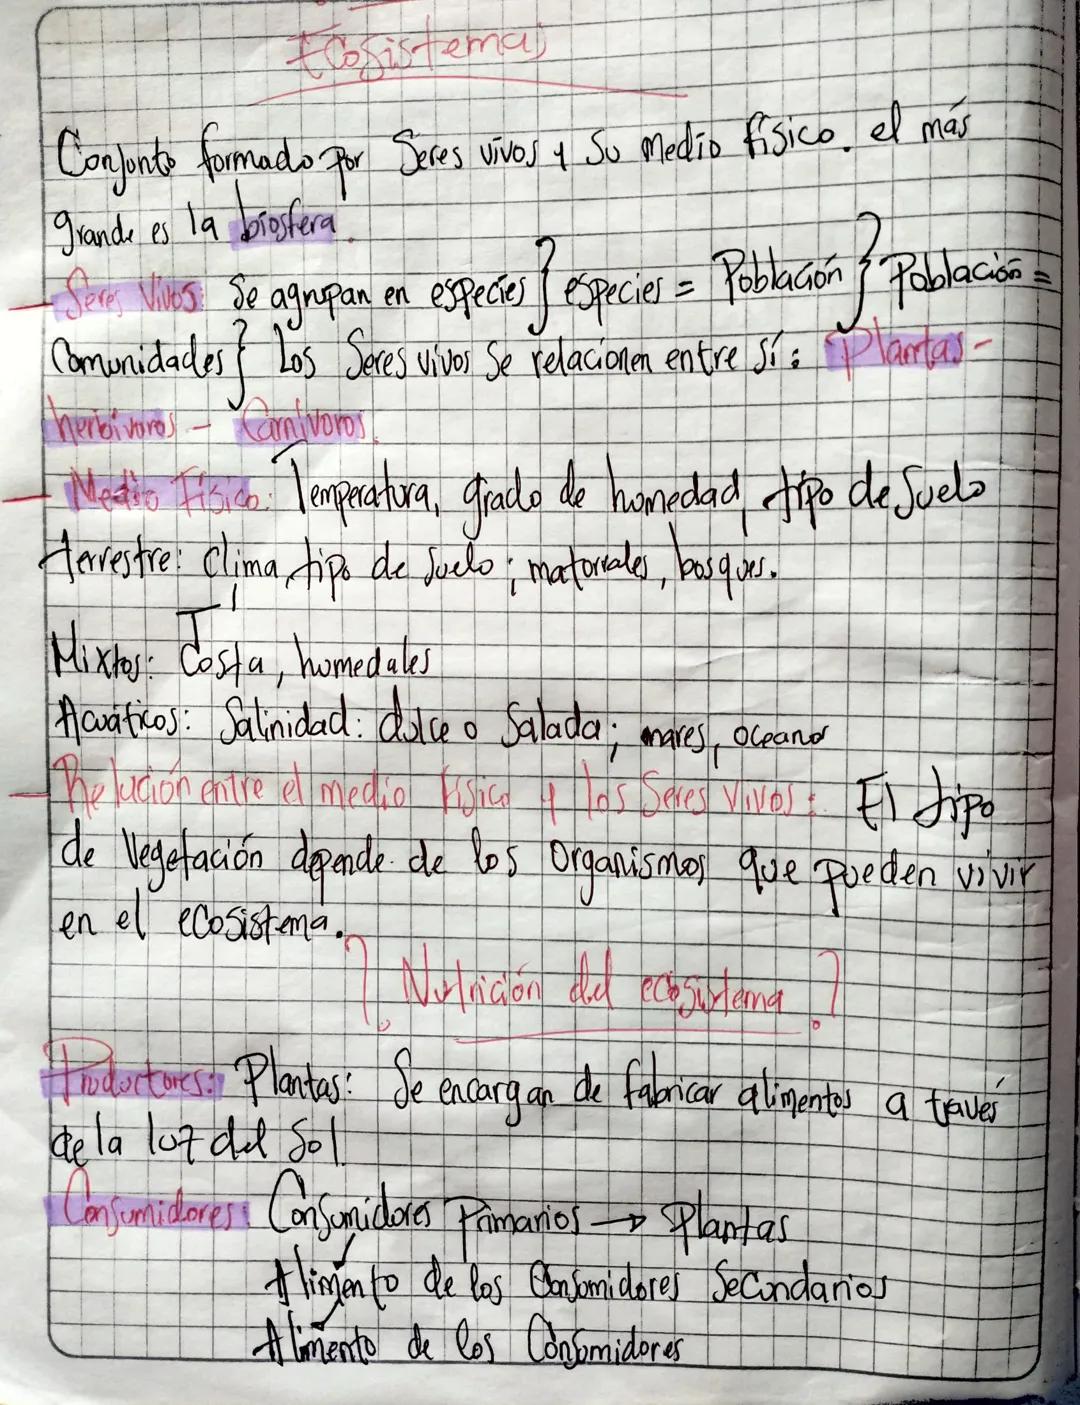 Ecosistemas
Conjunto formado por Seres vivos y Su Medio físico. el más
grande es la biosfera.
Seres Vivos: Se agrupan en especies } especies = Población } Población =
Comunidades } Los Seres vivos Se relacionan entre Sí: Plantas -
herbívoros - Carnívoros.
Medio Físico: Temperatura, grado de homedad, tipo de Suelo
terrestre: Clima, tipo de Suelo; matorrales, bosques.
Mixtos: Costa, humedales
Acuáticos: Salinidad: dulce o Salada; mares, oceano
Relación entre el medio Físico y los Seres Vivos: El tipo
de Vegetación depende de los Organismos que pueden vivir
en el ecosistema.
¿Nutrición del ecosistema?
Productores: Plantas: Se encargan de fabricar alimentos a través
de la luz del Sol
Consumidores: Consumidores Primarios → Plantas
Alimento de los Consumidores Secundarios
Alimento de los Consumidores